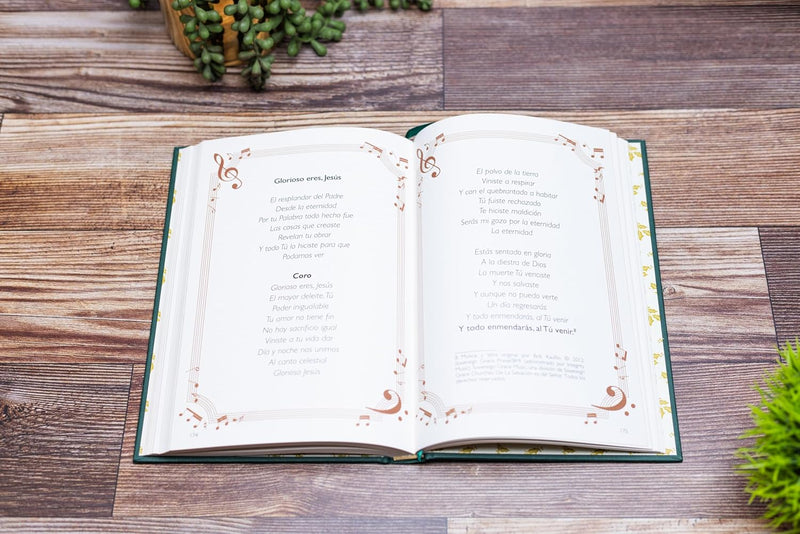 Glorioso eres, Jesús
El resplandor del Padre
Desde la eternidad
Por tu Palabra todo hecho fue
Las cosas que creaste
Revelan tu obrar
Y todo Tú lo hiciste para que
Podamos ver
Coro
Glorioso eres, Jesús
El mayor deleite, Tú
Poder inigualable
Tu amor no tiene fin
No hay sacrificio igual
Viniste a tu vida dar
Día y noche nos unimos
Al canto celestial
Glorioso Jesús
174
El polvo de la tierra
Viniste a respirar
Y con el quebrantado a habitar
Tú fuiste rechazado
Te hiciste maldición
Serás mi gozo por la eternidad
La eternidad
Estás sentado en gloria
A la diestra de Dios
La muerte Tú venciste
Y nos salvaste
Y aunque no puedo verte
Un día regresarás
Y todo enmendarás, al Tú venir
Y todo enmendarás, al Tú venir.⁸
8 Música y letra original por Bob Kauflin, © 2012
Grace Churches. De La Salvación es del Señor. Todos los
derechos reservados.
175